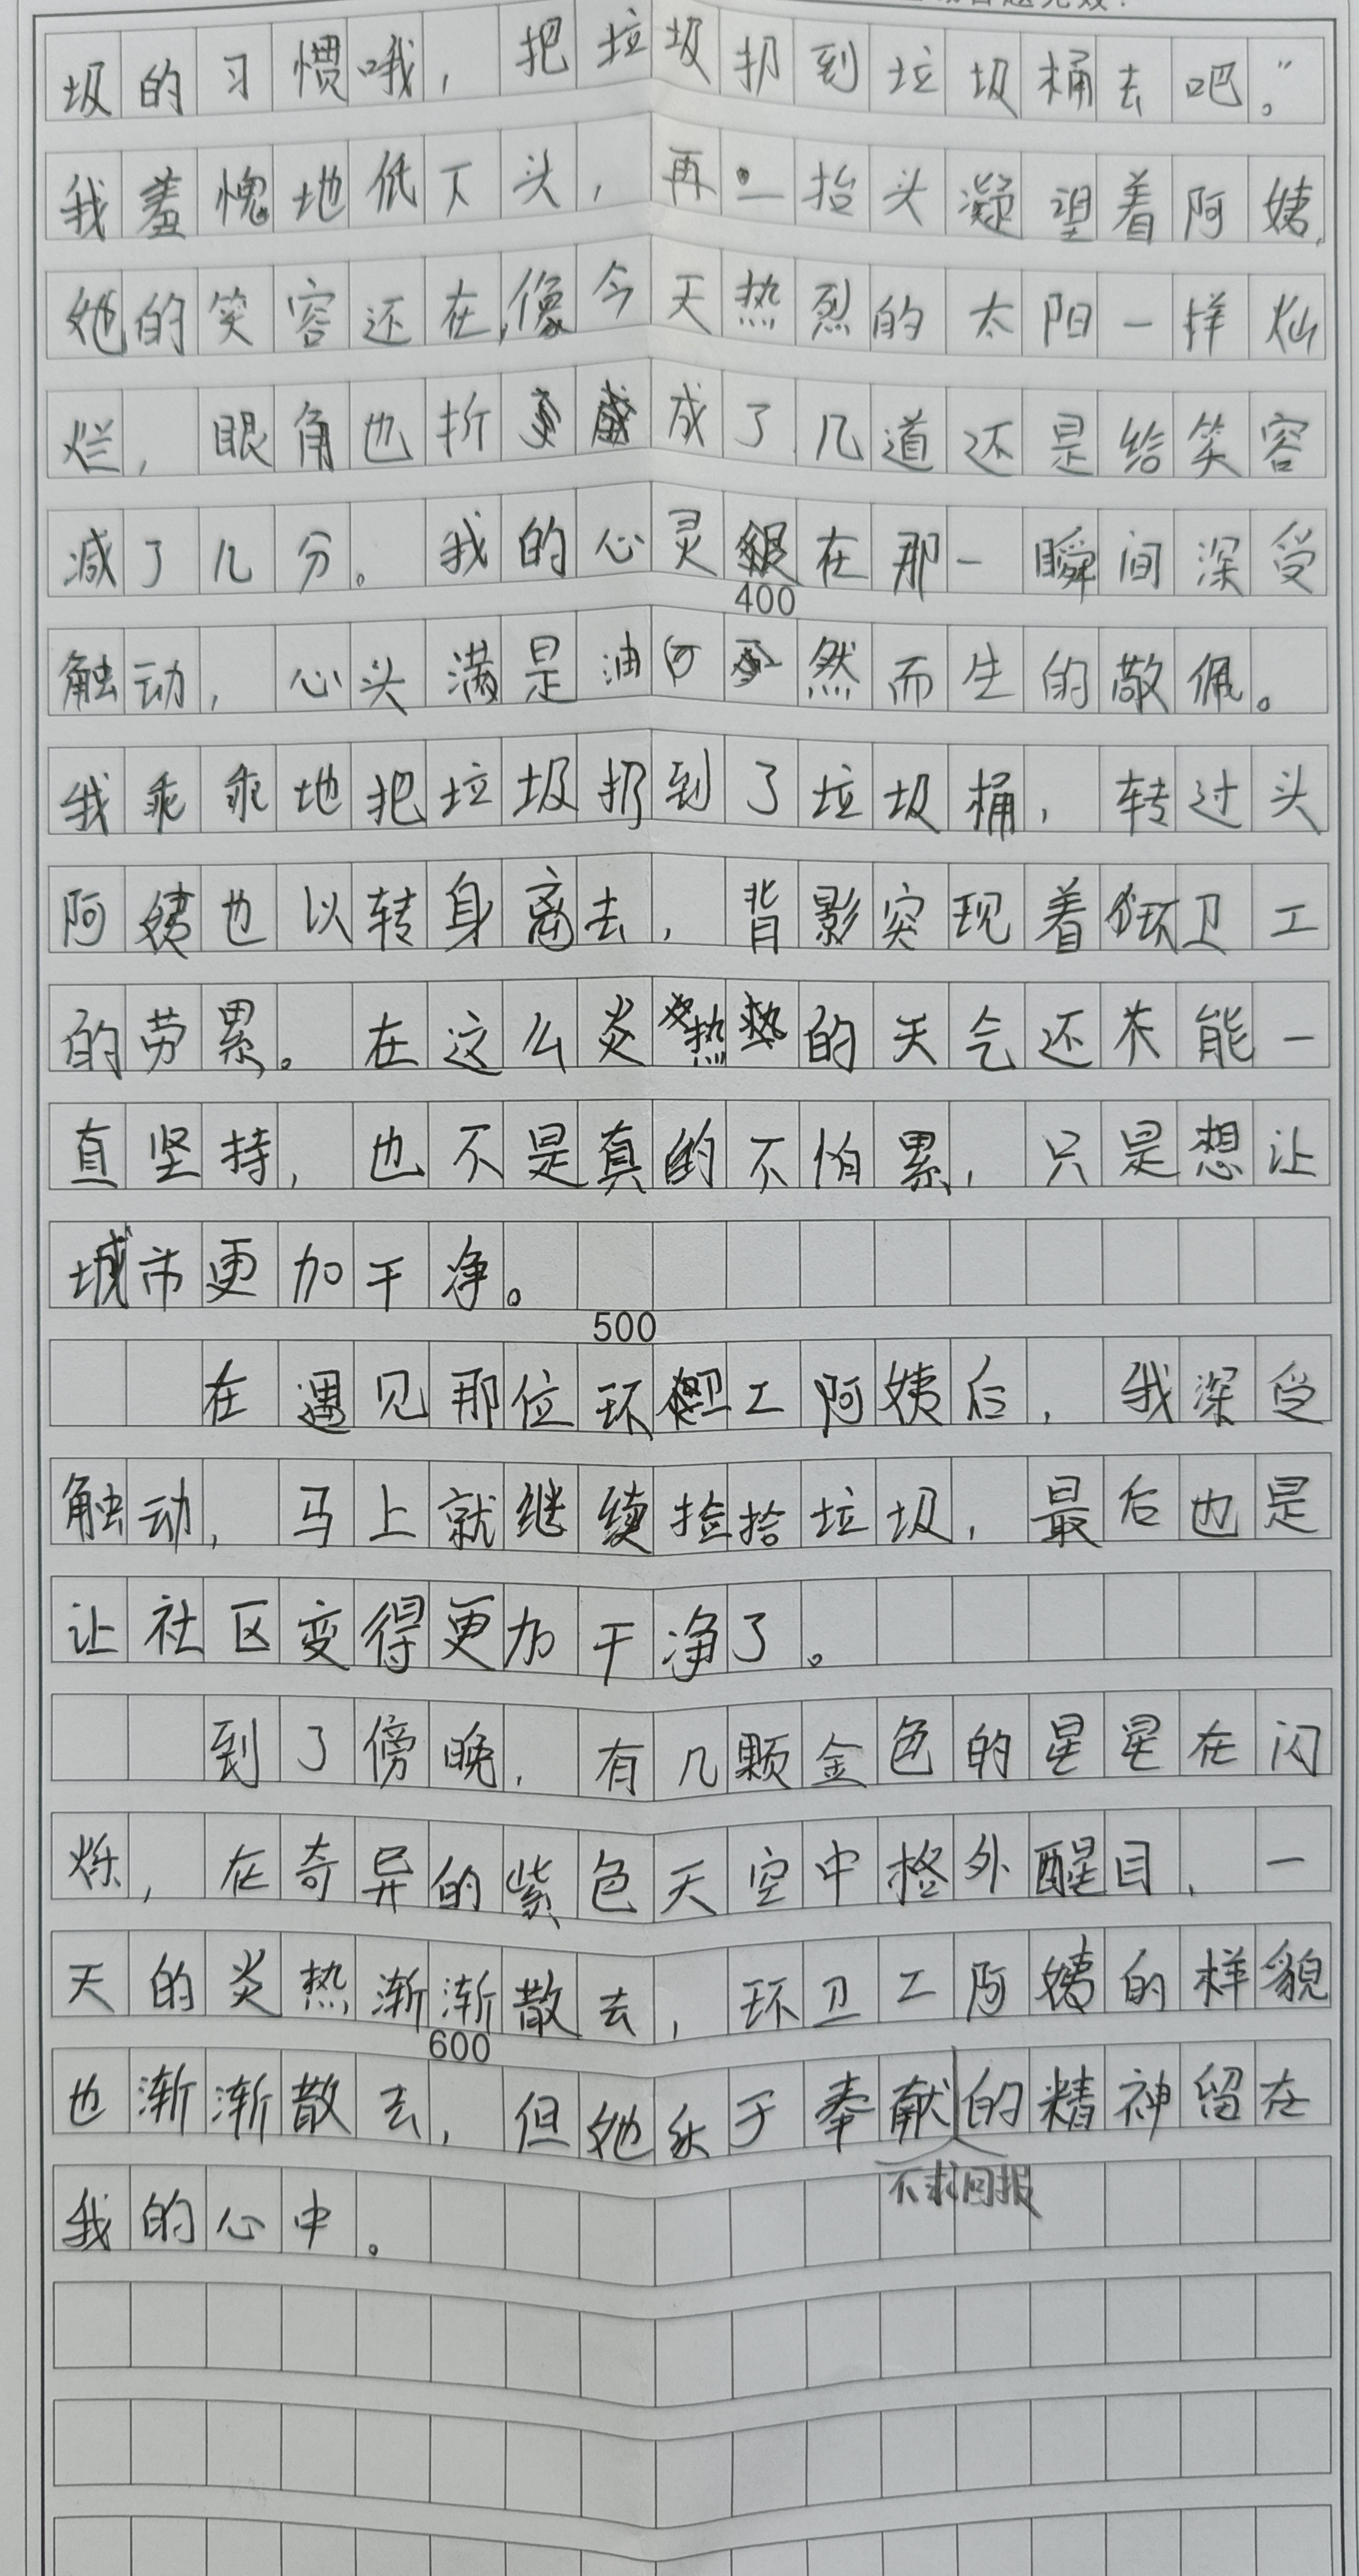 圾的习惯哦，把垃圾扔到垃圾桶去吧。”
我羞愧地低下头，再一抬头凝望着阿姨，
她的笑容还在，像今天热烈的太阳一样灿
烂，眼角也折成了几道还是给笑容
减了几分。我的心灵在那一瞬间深受
400
触动，心头满是油然而生的敬佩。
我乖乖地把垃圾扔到了垃圾桶，转过头
阿姨也以转身离去，背影突现着环卫工
的劳累。在这么炎热的天气还能一
直坚持，也不是真的不怕累，只是想让
城市更加干净。
500
在遇见那位环卫工阿姨后，我深受
触动，马上就继续捡拾垃圾，最后也是
让社区变得更加干净了。
到了傍晚，有几颗金色的星星在闪
烁，在奇异的紫色天空中格外醒目，一
天的炎热渐渐散去，环卫工阿姨的样貌
600
也渐渐散去，但她于奉献的精神留在
不求回报
我的心中。